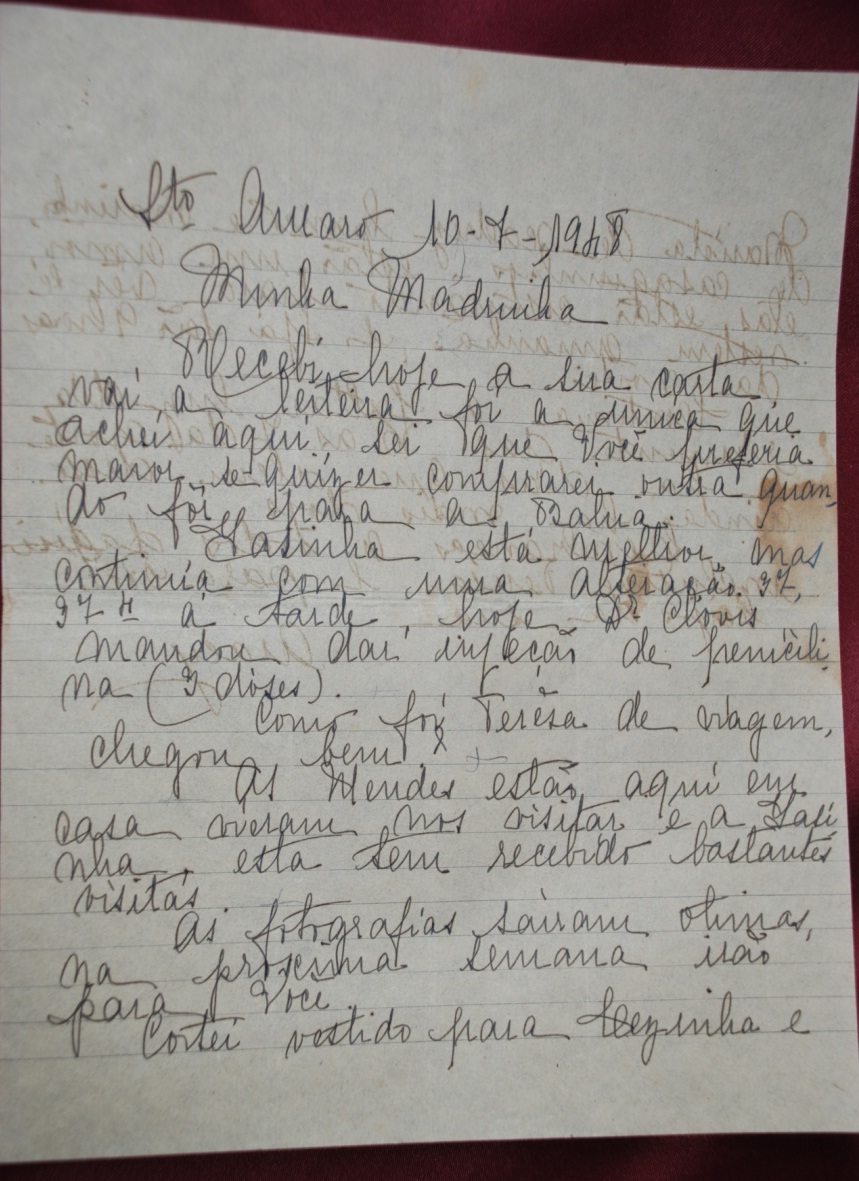 Sto Amaro 10-7-1948
Minha Madrinha
Recebi, hoje a sua carta
vai a leiteira foi a única que
achei aqui, sei que Você preferia
maior, se quizer comprarei outra quan-
do fôr para a Bahia.
está melhor, mas
continúa com uma alteração. 37,
37 ½ á tarde, hoje Dr Clovis
mandou dar injeção de penicili-
na (3 dóses).
Como foi Terêsa de viagem,
chegou bem?
As Mendes estão aqui em
casa vieram nos visitar e a
nha, esta tem recebido bastantes
visitas.
As fotografias sairam otimas,
na proxima semana irão
para Você.
Cortei vestido para e